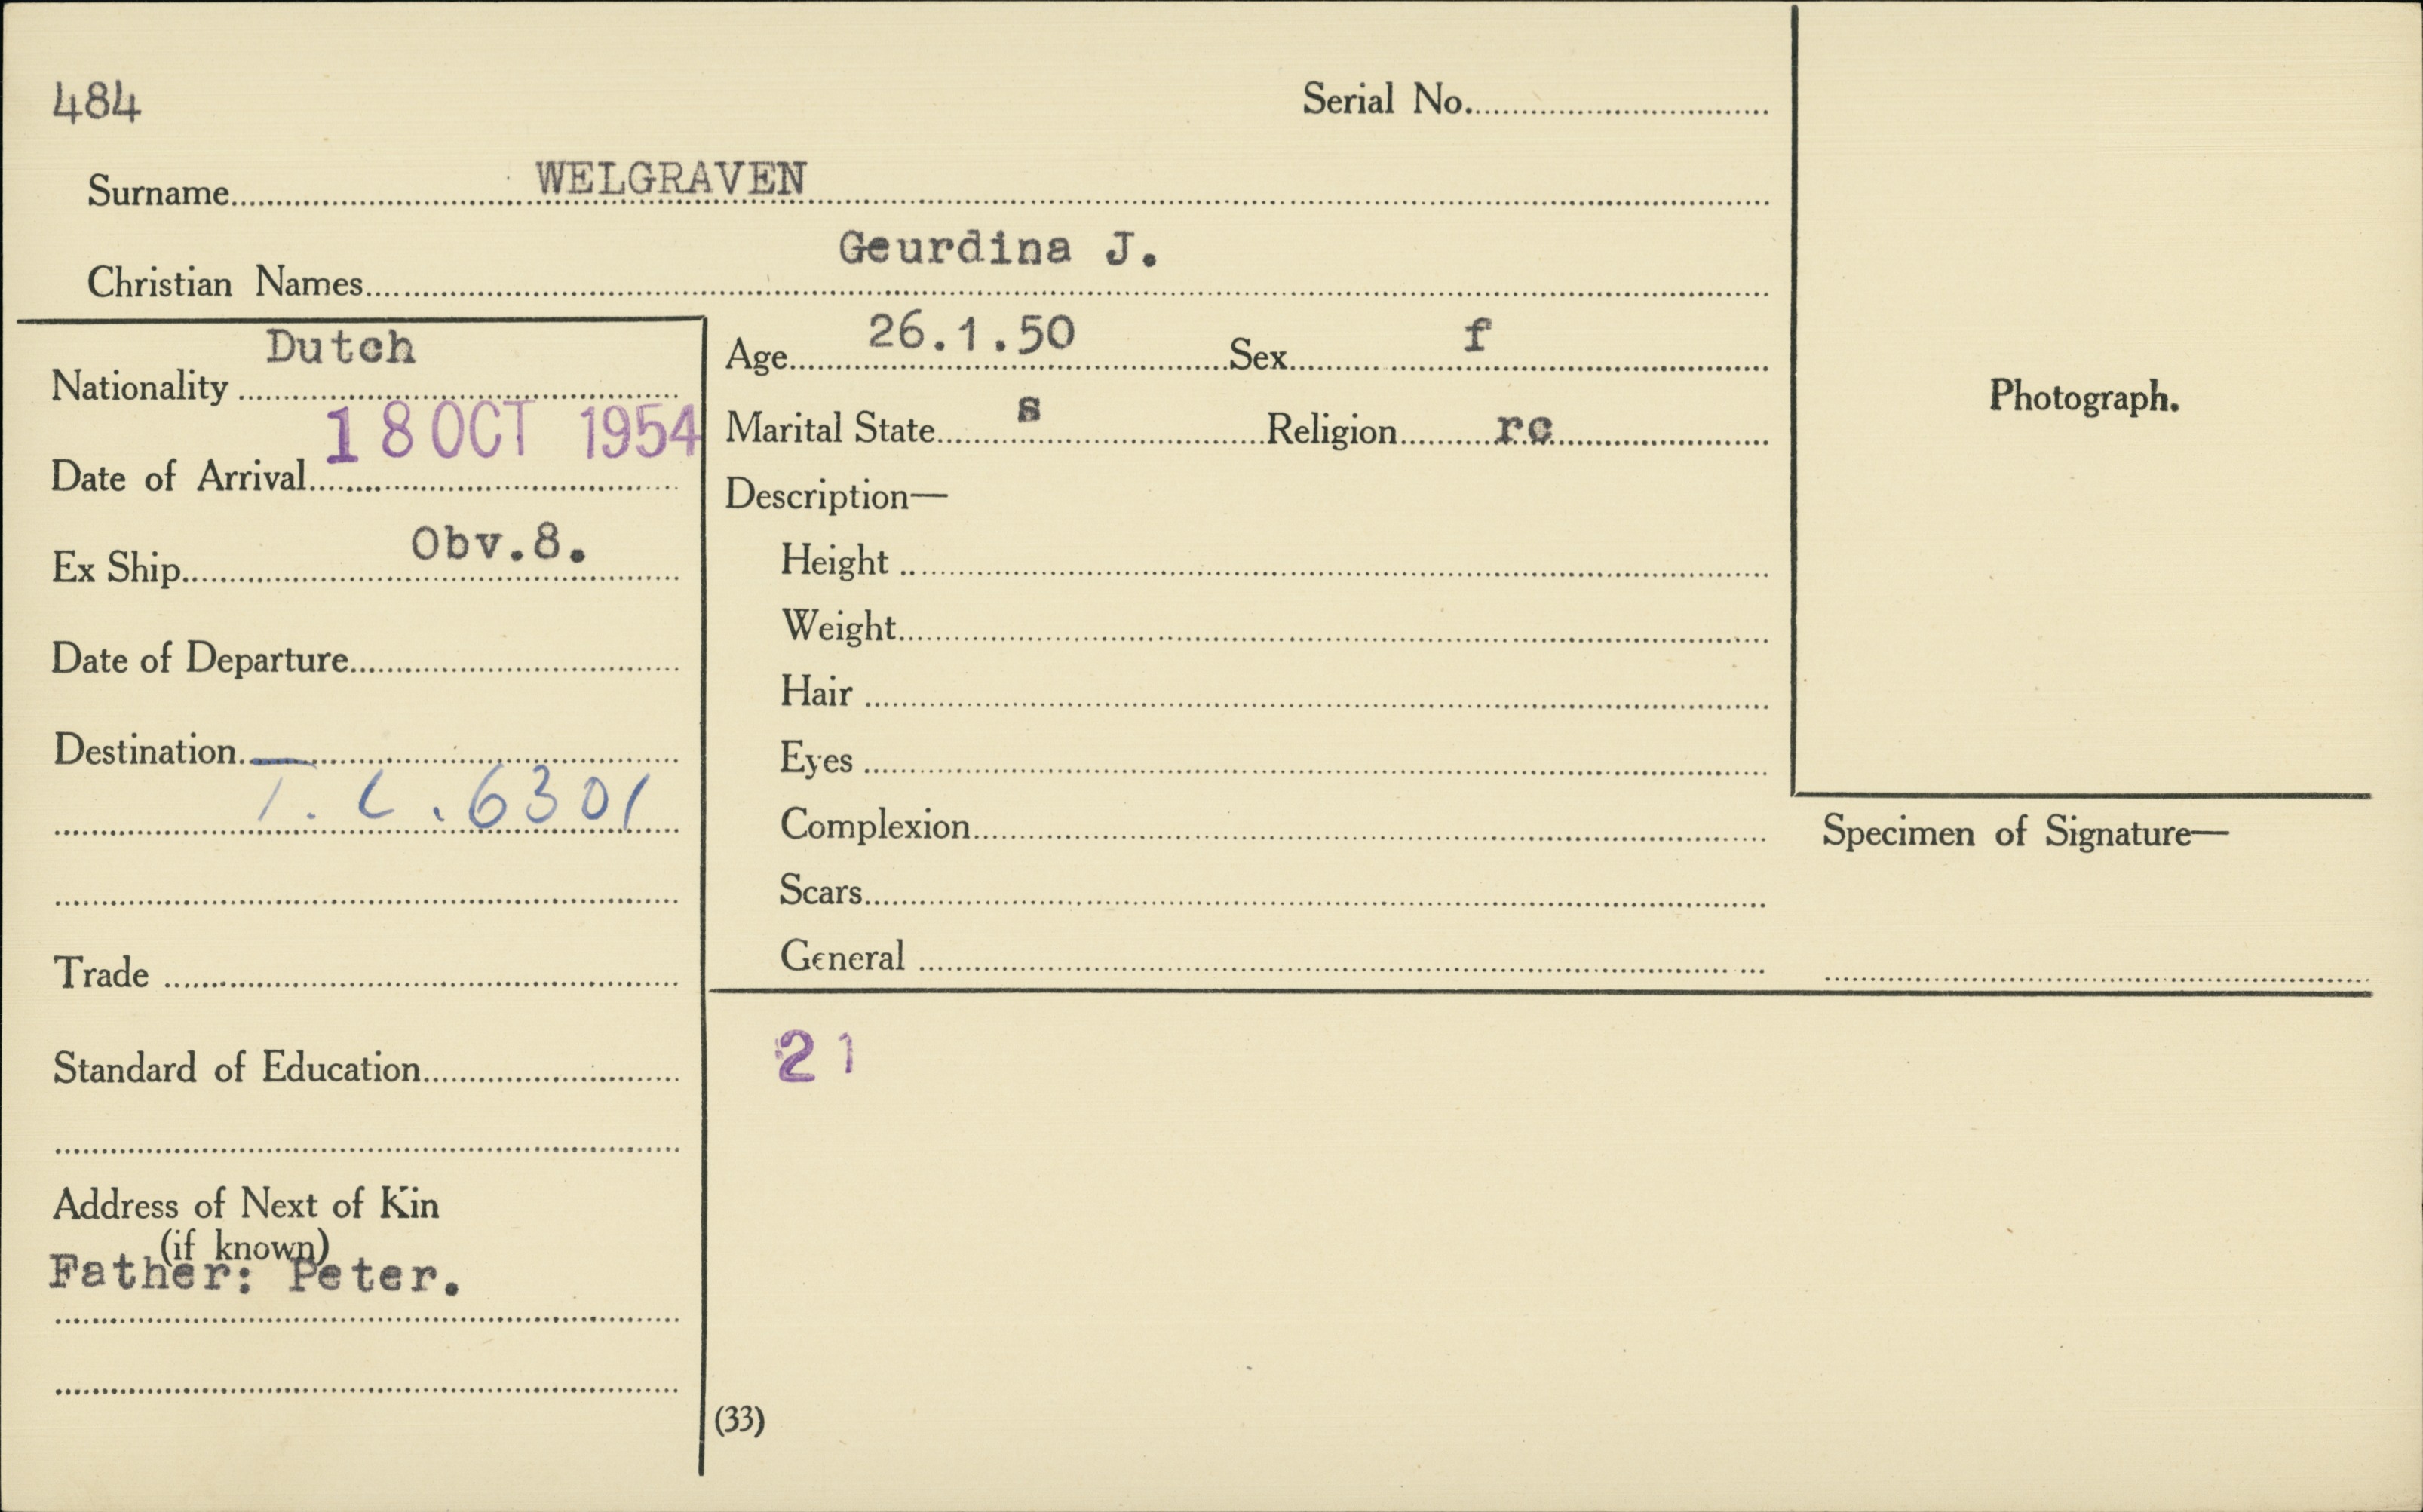 484
Serial No.
Surname WELGRAVEN
Christian Names Geurdina J.
Nationality Dutch
Date of Arrival 18 OCT 1954
Ex Ship Obv.8.
Date of Departure
Destination
T.C.6301
Trade
Standard of Education
Address of Next of Kin
(if known)
Father: Peter.
Age 26.1.50 Sex f
Marital State s Religion rc
Description—
Height
Weight
Hair
Eyes
Complexion
Scars
General
21
(33)
Photograph.
Specimen of Signature—